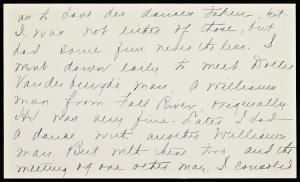 as to
I was not either of those, but
had some fun nevertheless. I
went down early to meet Dottie
man, a Williams
man from Fall River, originally
He was very fine. Later I had
a dance with another Williams
man. But with these two, and the
meeting of one other man, I consoled